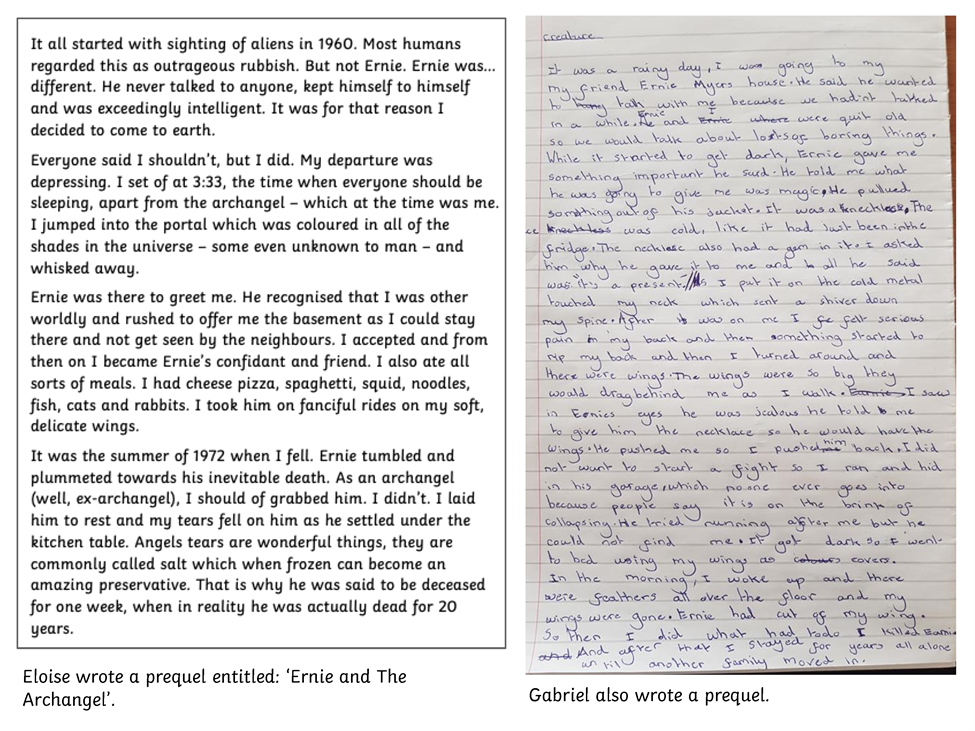 It all started with sighting of aliens in 1960. Most humans
regarded this as outrageous rubbish. But not Ernie. Ernie was...
different. He never talked to anyone, kept himself to himself
and was exceedingly intelligent. It was for that reason I
decided to come to earth.
Everyone said I shouldn't, but I did. My departure was
depressing. I set of at 3:33, the time when everyone should be
sleeping, apart from the archangel – which at the time was me.
I jumped into the portal which was coloured in all of the
shades in the universe – some even unknown to man – and
whisked away.
Ernie was there to greet me. He recognised that I was other
worldly and rushed to offer me the basement as I could stay
there and not get seen by the neighbours. I accepted and from
then on I became Ernie's confidant and friend. I also ate all
sorts of meals. I had cheese pizza, spaghetti, squid, noodles,
fish, cats and rabbits. I took him on fanciful rides on my soft,
delicate wings.
It was the summer of 1972 when I fell. Ernie tumbled and
plummeted towards his inevitable death. As an archangel
(well, ex-archangel), I should of grabbed him. I didn't. I laid
him to rest and my tears fell on him as he settled under the
kitchen table. Angels tears are wonderful things, they are
commonly called salt which when frozen can become an
amazing preservative. That is why he was said to be deceased
for one week, when in reality he was actually dead for 20
years.
Eloise wrote a prequel entitled: 'Ernie and The
Archangel'.
creature
It was a rainy day, I was going to my
my friend Ernie Myers house. He said he wanted
to talk with me because we hadn't talked
in a while. Ernie and I were quit old
so we would talk about lots of boring things.
While it started to get dark, Ernie gave me
something important he said. He told me what
he was going to give me was magic, He pullued
something out of his jacket. It was a knecklace, The
was cold, like it had just been in the
fridge. The necklace also had a gem in it. I asked
him why he gave it to me and all he said
was "it's a present." As I put it on the cold metal
touched my neck which sent a shiver down
my spine. After it was on me I felt serious
pain in my back and then something started to
rip my back and then I turned around and
there were wings. The wings were so big they
would drag behind me as I walk. I saw
in Ernies eyes he was jealous he told me
to give him the necklace so he would have the
wings. He pushed me so I pushed him back. I did
not want to start a fight so I ran and hid
in his garage, which no one ever goes into
because people say it is on the brink of
collapsing. He tried running after me but he
could not find me. It got dark so I went
to bed using my wings as covers.
In the morning, I woke up and there
were feathers all over the floor and my
wings were gone. Ernie had cut of my wing.
So then I did what had todo I killed Earnie
And after that I stayed for years all alone
until another family moved in.
Gabriel also wrote a prequel.